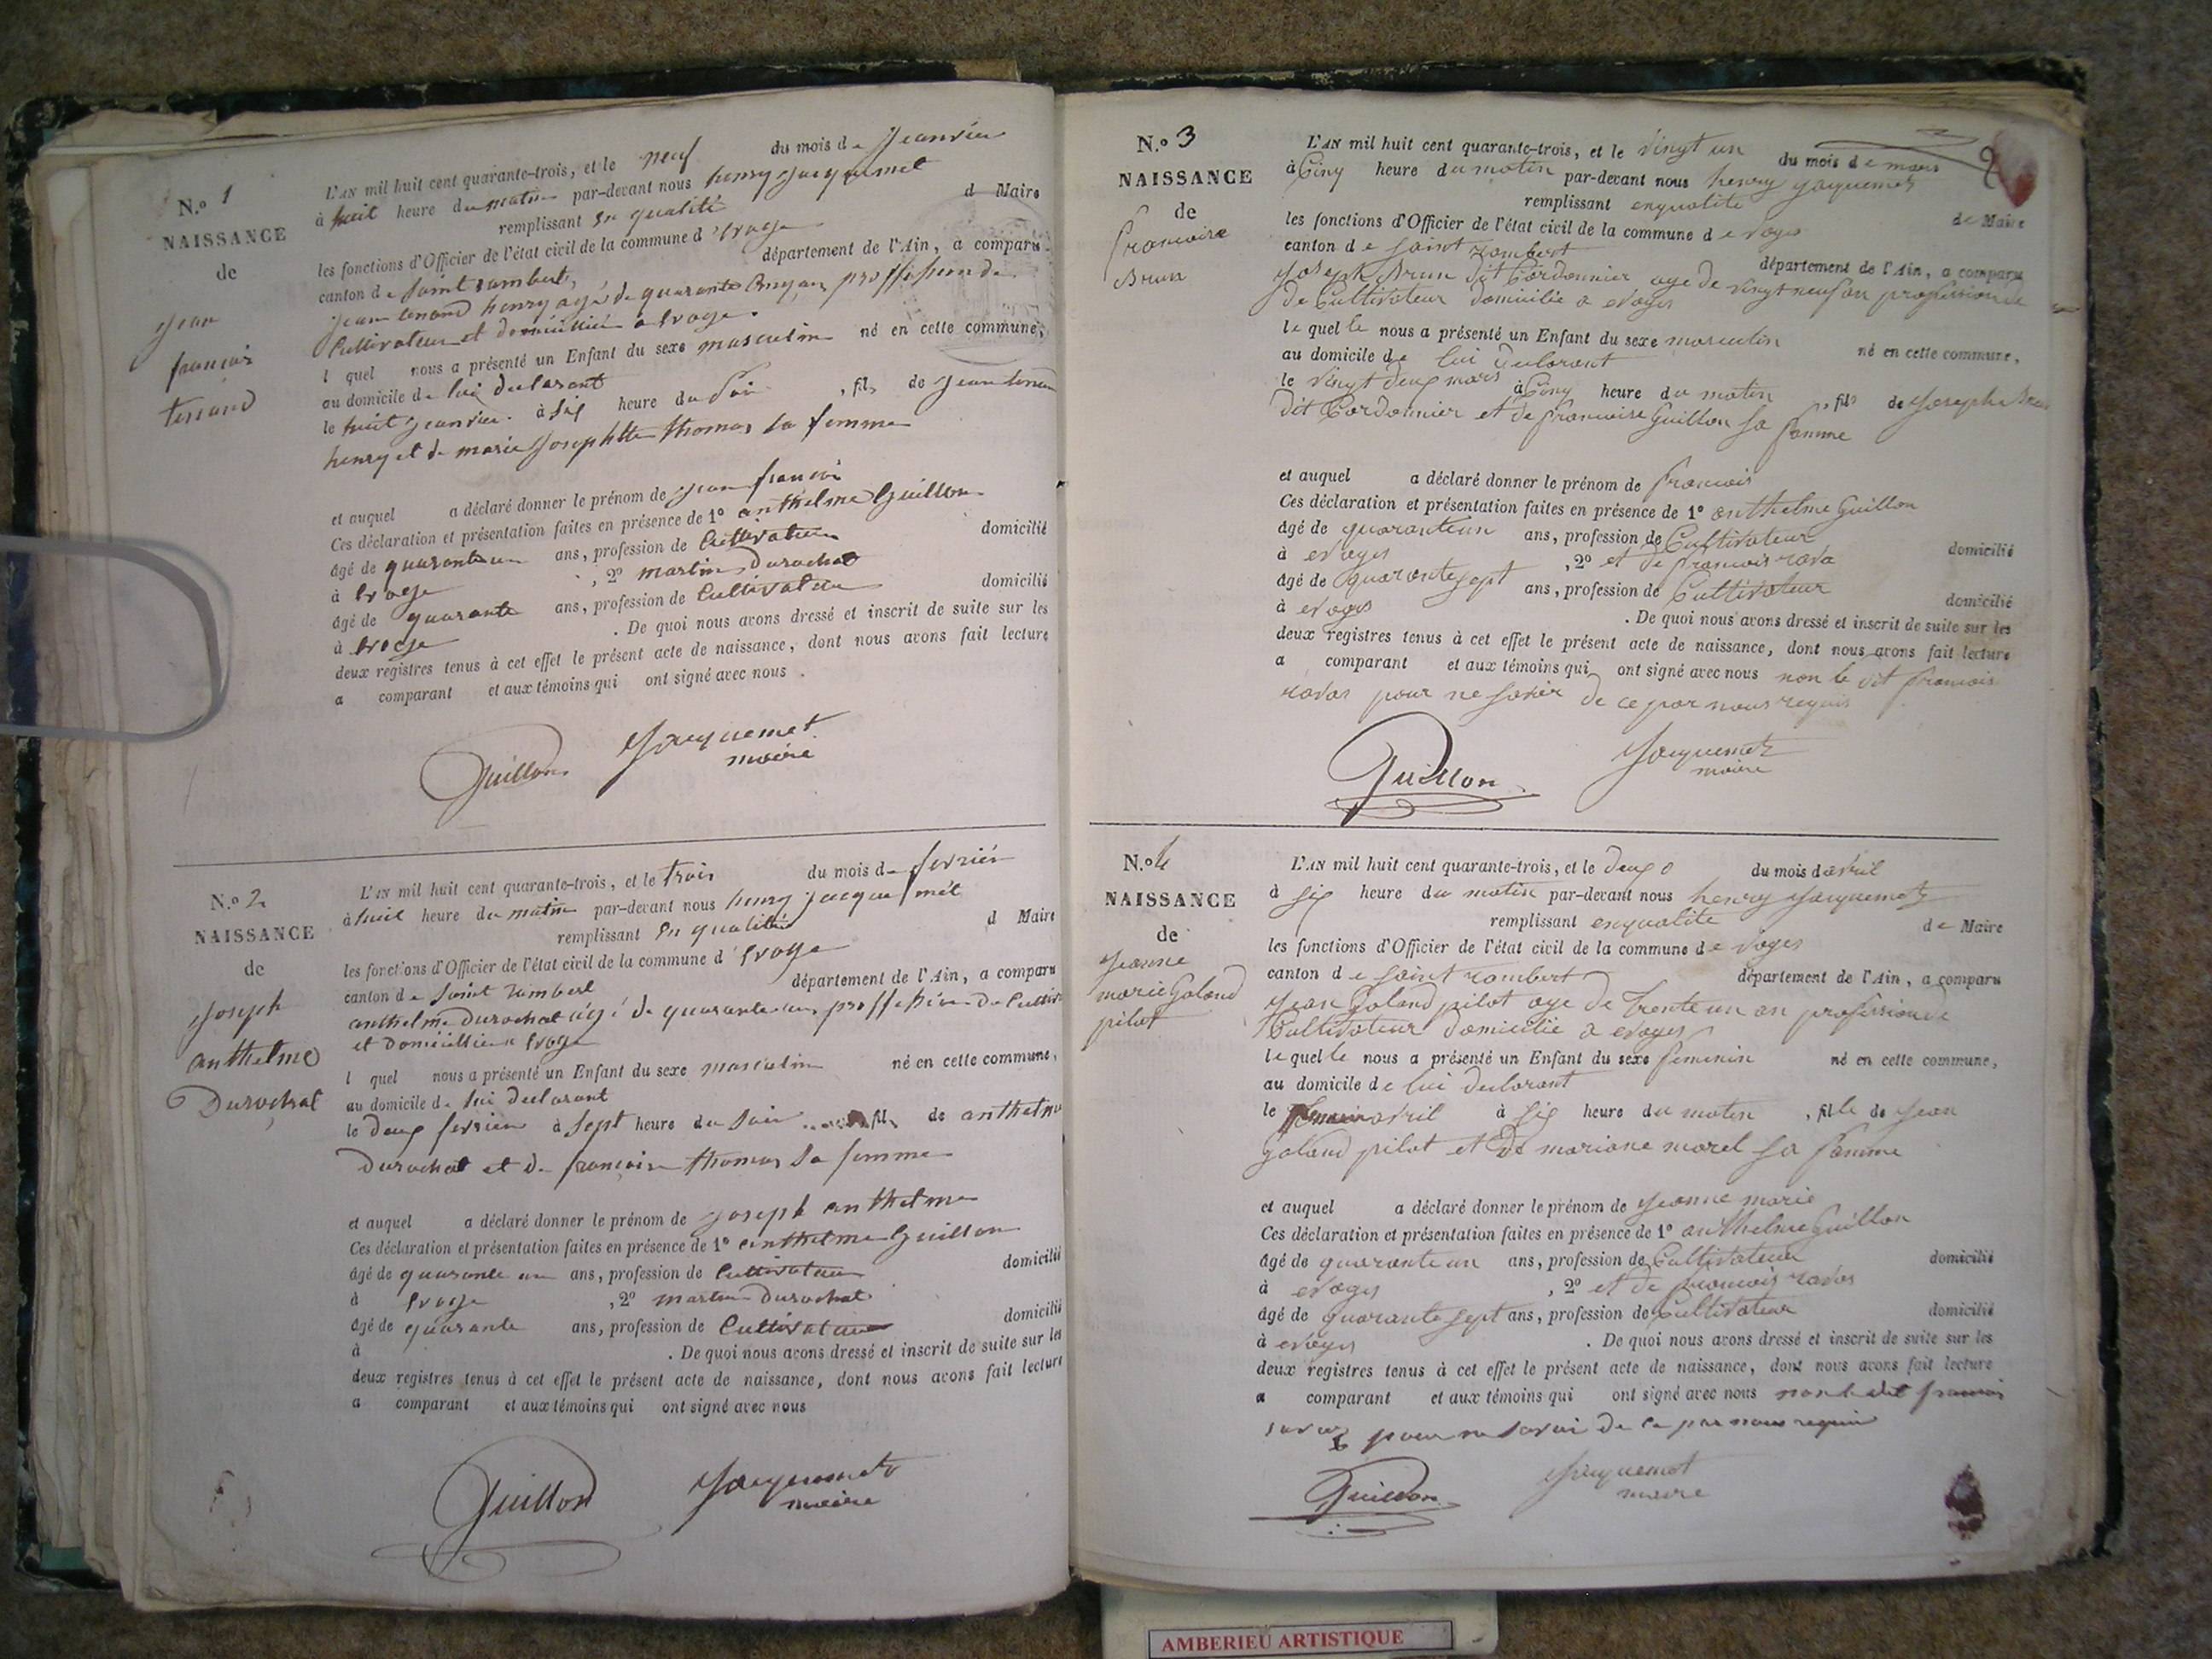 N.º 1
NAISSANCE
de
jean
francois
tenand
L'AN mil huit cent quarante-trois, et le neuf du mois de jeanvier
à huit heure du matin par-devant nous henry jacquemet
remplissant en qualité d Maire
les fonctions d'Officier de l'état civil de la commune d'evoge
canton de saint rambert, département de l'Ain, a comparu
jean tenand henry agé de quarante proffession de
Cultivateur et domicillié a Evoge.
l quel nous a présenté un Enfant du sexe masculin né en cette commune,
au domicile de lui declarant
le huit jeanvier à six heure du soir , fils de jean tenan
henry et de marie josephtte thomas sa femme
et auquel a déclaré donner le prénom de jean francois
Ces déclaration et présentation faites en présence de 1º anthelme Guillon
âgé de quarante un ans, profession de Cultivateur domicilié
à Evoge , 2º martin Durochat
âgé de quarante ans, profession de Cultivateur domicilié
à Evoge . De quoi nous avons dressé et inscrit de suite sur les
deux registres tenus à cet effet le présent acte de naissance, dont nous avons fait lecture
a comparant et aux témoins qui ont signé avec nous .
Guillon Jacquemet
maire
N.º 2
NAISSANCE
de
joseph
anthelme
Durochat
L'AN mil huit cent quarante-trois, et le trois du mois de fevrier
à huit heure du matin par-devant nous henry jacquemet
remplissant en qualité d Maire
les fonctions d'Officier de l'état civil de la commune d'Evoge
canton de saint rambert département de l'Ain, a comparu
anthelme durochat agé de quarante ans proffession de Cultiv
et domicillié a Evoge
l quel nous a présenté un Enfant du sexe masculin né en cette commune,
au domicile de lui declarant
le deux fevrier à sept heure du soir , fils de anthelme
durochat et de francoise thomas sa femme
et auquel a déclaré donner le prénom de joseph anthelme
Ces déclaration et présentation faites en présence de 1º anthelme Guillon
âgé de quarante un ans, profession de Cultivateur domicilié
à Evoge , 2º martin Durochat
âgé de quarante ans, profession de Cultivateur domicilié
à . De quoi nous avons dressé et inscrit de suite sur les
deux registres tenus à cet effet le présent acte de naissance, dont nous avons fait lecture
a comparant et aux témoins qui ont signé avec nous
Guillon Jacquemet
maire
N.º 3
NAISSANCE
de
francoise
Brun
L'AN mil huit cent quarante-trois, et le vingt un du mois de mars
à Cinq heure du matin par-devant nous henry jacquemet
remplissant enqualité de Maire
les fonctions d'Officier de l'état civil de la commune d evoges
canton de saint rambert département de l'Ain, a comparu
Joseph Brun dit Cordonnier age de vingt neuf an profession de
de Cultivateur domicilié a evoges
le quel le nous a présenté un Enfant du sexe masculin né en cette commune,
au domicile de lui declarant
le vingt deux mars à Cinq heure du matin , fils de joseph Brun
dit Cordonnier et de francoise Guillon sa famme
et auquel a déclaré donner le prénom de francois
Ces déclaration et présentation faites en présence de 1º anthelme Guillon
âgé de quaranteun ans, profession de Cultivateur domicilié
à evoges , 2º et de francois rava
âgé de quarantesept ans, profession de Cultivateur domicilié
à evoges . De quoi nous avons dressé et inscrit de suite sur les
deux registres tenus à cet effet le présent acte de naissance, dont nous avons fait lecture
a comparant et aux témoins qui ont signé avec nous non le dit francois
ravas pour ne savoir de ce par nous requis
Guillon Jacquemet
maire
N.º 4
NAISSANCE
de
jeanne
marie Galand
pilot
L'AN mil huit cent quarante-trois, et le deux du mois d avril
à six heure du matin par-devant nous henry jacquemet
remplissant enqualité de Maire
les fonctions d'Officier de l'état civil de la commune d evoges
canton de saint rambert département de l'Ain, a comparu
jean Galand pilot age de trente un an profession de
Cultivateur domicilié a evoges
le quel le nous a présenté un Enfant du sexe feminin né en cette commune,
au domicile de lui declarant
le avril à six heure du matin , fille de jean
galand pilot et de mariane morel sa famme
et auquel a déclaré donner le prénom de jeanne marie
Ces déclaration et présentation faites en présence de 1º anthelme Guillon
âgé de quaranteun ans, profession de Cultivateur domicilié
à evoges , 2º et de francois ravas
âgé de quarante sept ans, profession de Cultivateur domicilié
à evoges . De quoi nous avons dressé et inscrit de suite sur les
deux registres tenus à cet effet le présent acte de naissance, dont nous avons fait lecture
a comparant et aux témoins qui ont signé avec nous non le dit francois
ravas pour ne savoir de ce par nous requis
Guillon Jacquemet
maire
AMBERIEU ARTISTIQUE